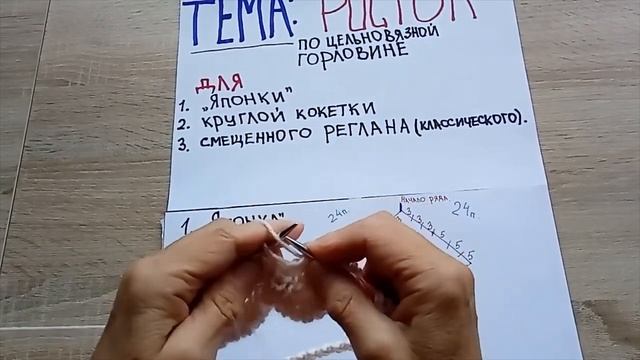 ТЕМА: РОСТОК
ПО ЦЕЛЬНОВЯЗНОЙ
ГОРЛОВИНЕ
ДЛЯ
1. „ЯПОНКИ"
2. КРУГЛОЙ КОКЕТКИ
3. СМЕЩЕННОГО РЕГЛАНА (КЛАССИЧЕСКОГО).
1. „ЯПОНКА"
24п.
НАЧАЛО РЯДА
24п.
3 3 3 5 5 5